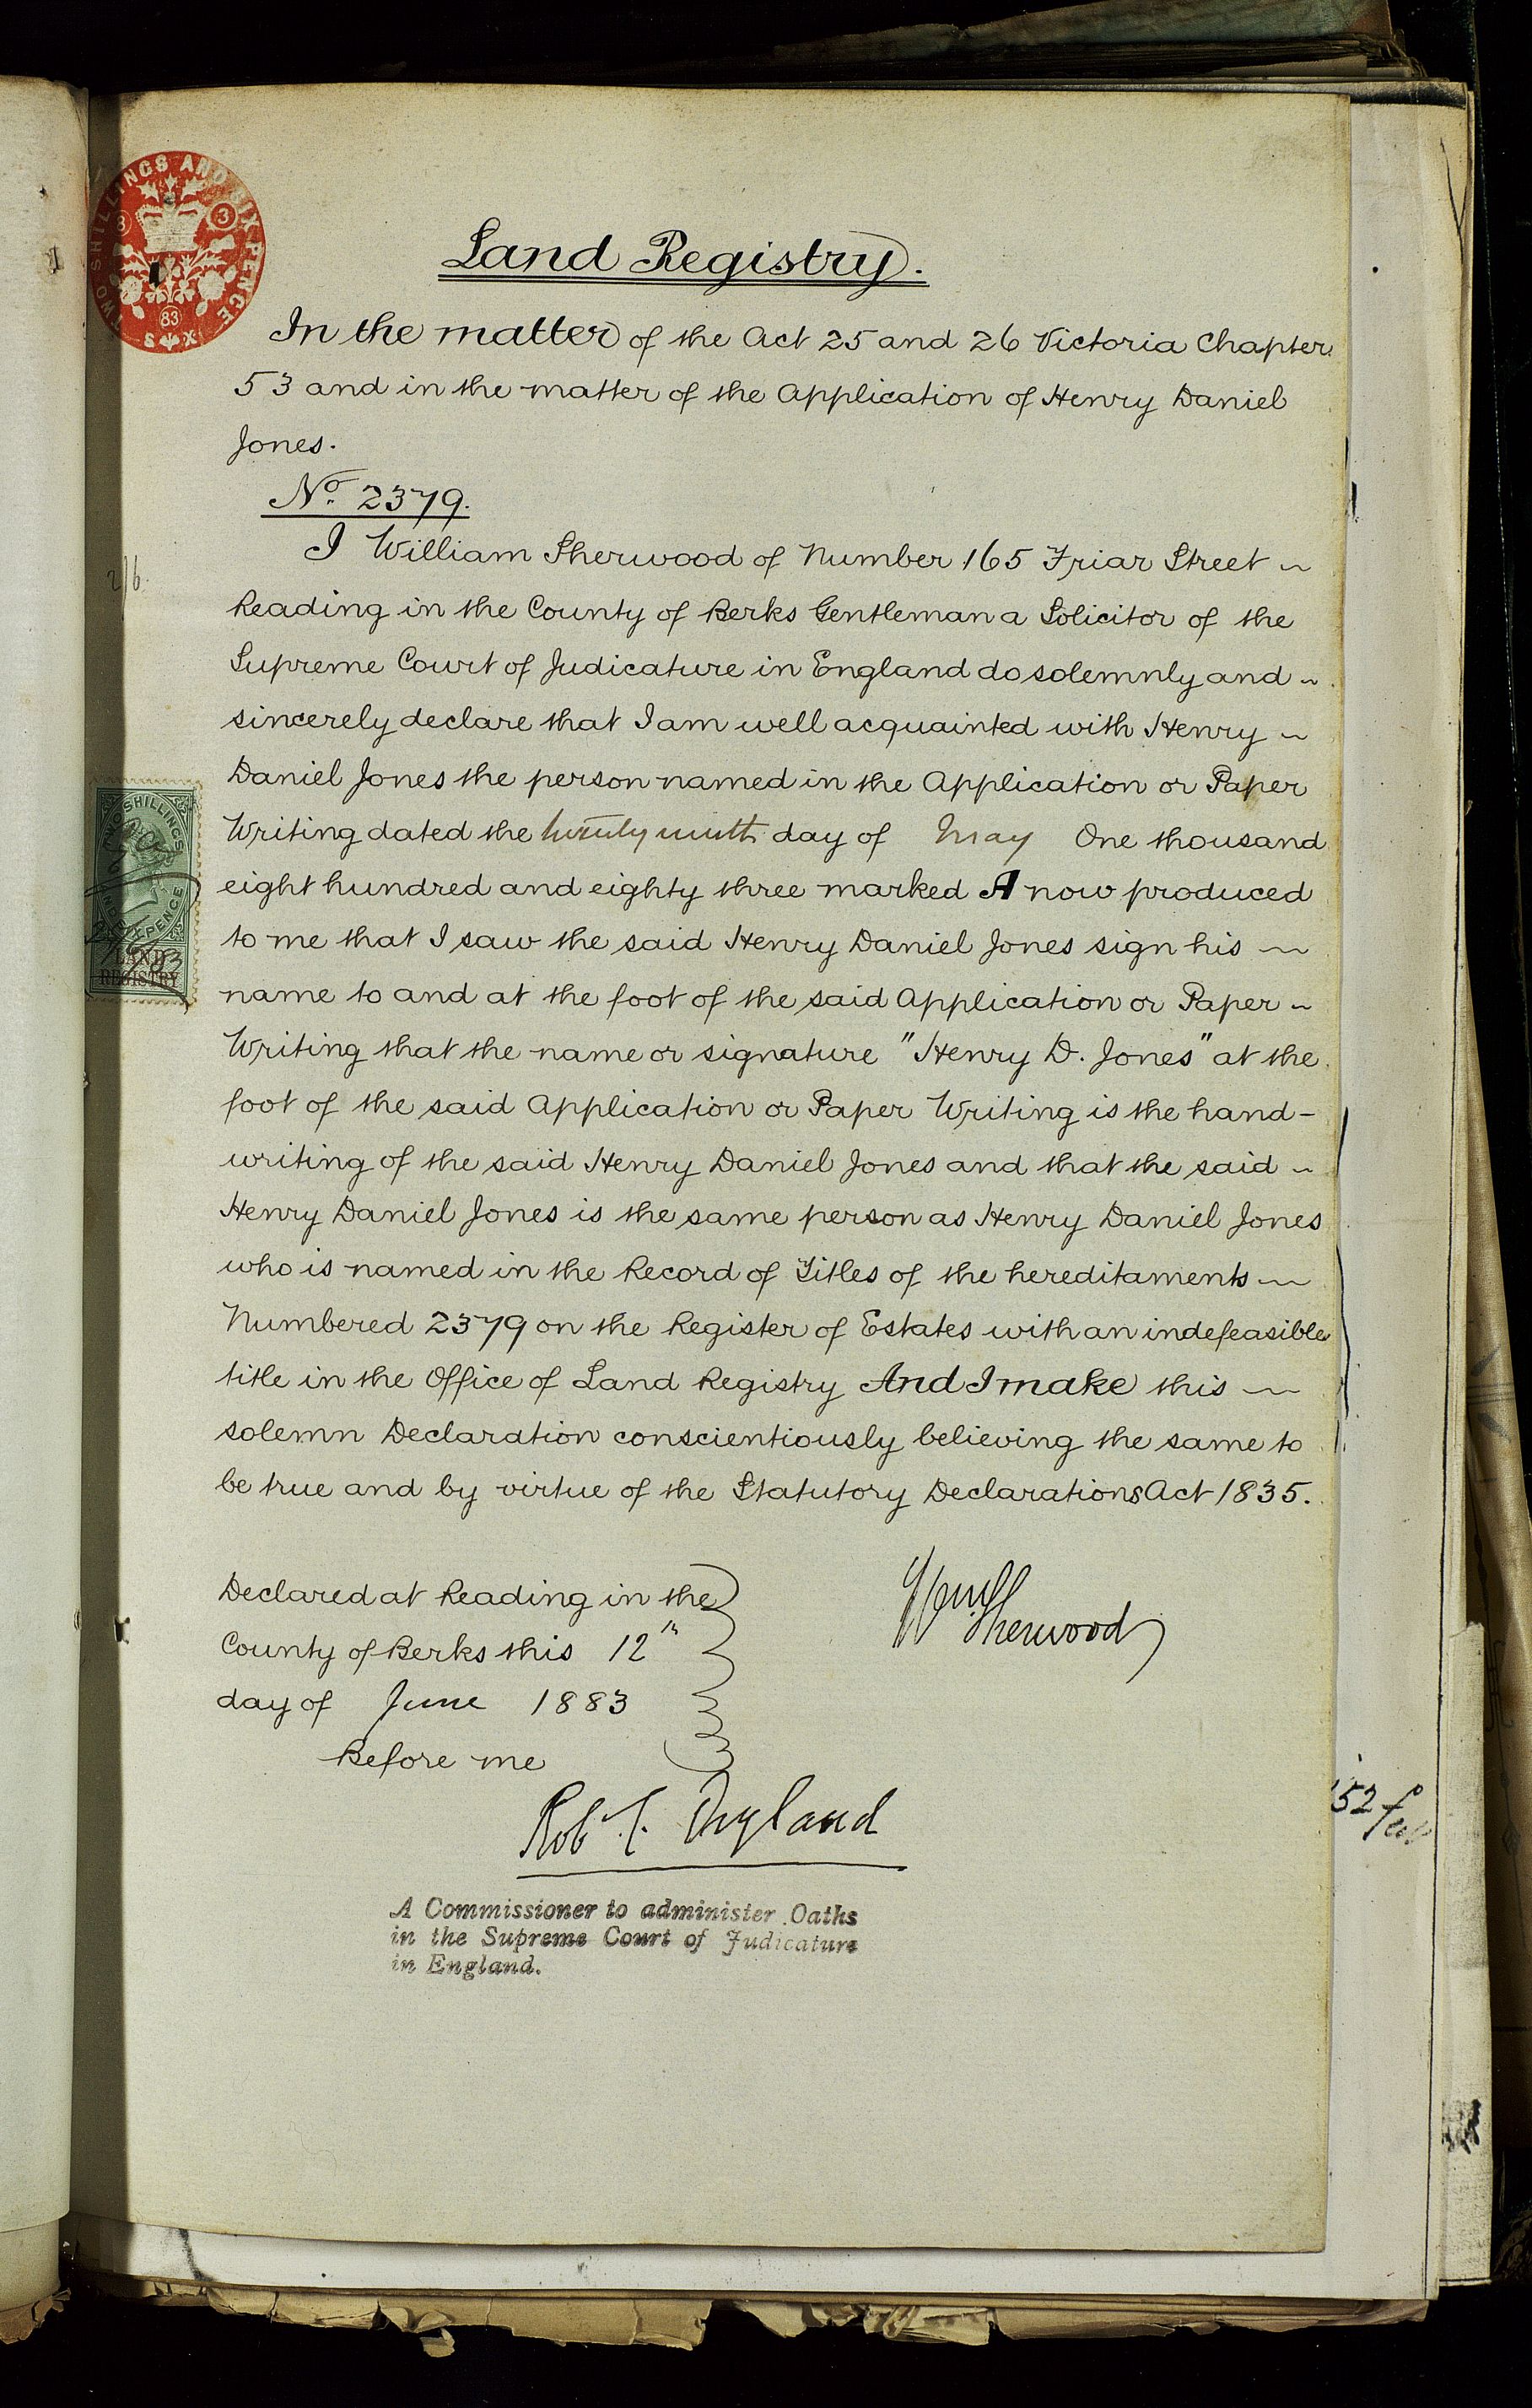 TWO SHILLINGS AND SIX PENCE
3
83
Land Registry.
In the matter of the Act 25 and 26 Victoria Chapter
53 and in the matter of the Application of Henry Daniel
Jones.
No. 2379.
I William Sherwood of Number 165 Friar Street ~
2/6
Reading in the County of Berks Gentleman a Solicitor of the
Supreme Court of Judicature in England do solemnly and ~
sincerely declare that I am well acquainted with Henry ~
Daniel Jones the person named in the Application or Paper
Writing dated the twenty ninth day of May One thousand
eight hundred and eighty three marked A now produced
to me that I saw the said Henry Daniel Jones sign his ~
name to and at the foot of the said Application or Paper ~
Writing that the name or signature "Henry D. Jones" at the
foot of the said Application or Paper Writing is the hand-
writing of the said Henry Daniel Jones and that the said ~
Henry Daniel Jones is the same person as Henry Daniel Jones
who is named in the Record of Titles of the hereditaments ~
Numbered 2379 on the Register of Estates with an indefeasible
title in the Office of Land Registry And I make this ~
solemn Declaration conscientiously believing the same to
be true and by virtue of the Statutory Declarations Act 1835.
TWO SHILLINGS
AND SIXPENCE
LAND
REGISTRY
Declared at Reading in the
County of Berks this 12th
day of June 1883
Before me
Wm Sherwood
Rob T.
A Commissioner to administer Oaths
in the Supreme Court of Judicature
in England.
152 feet